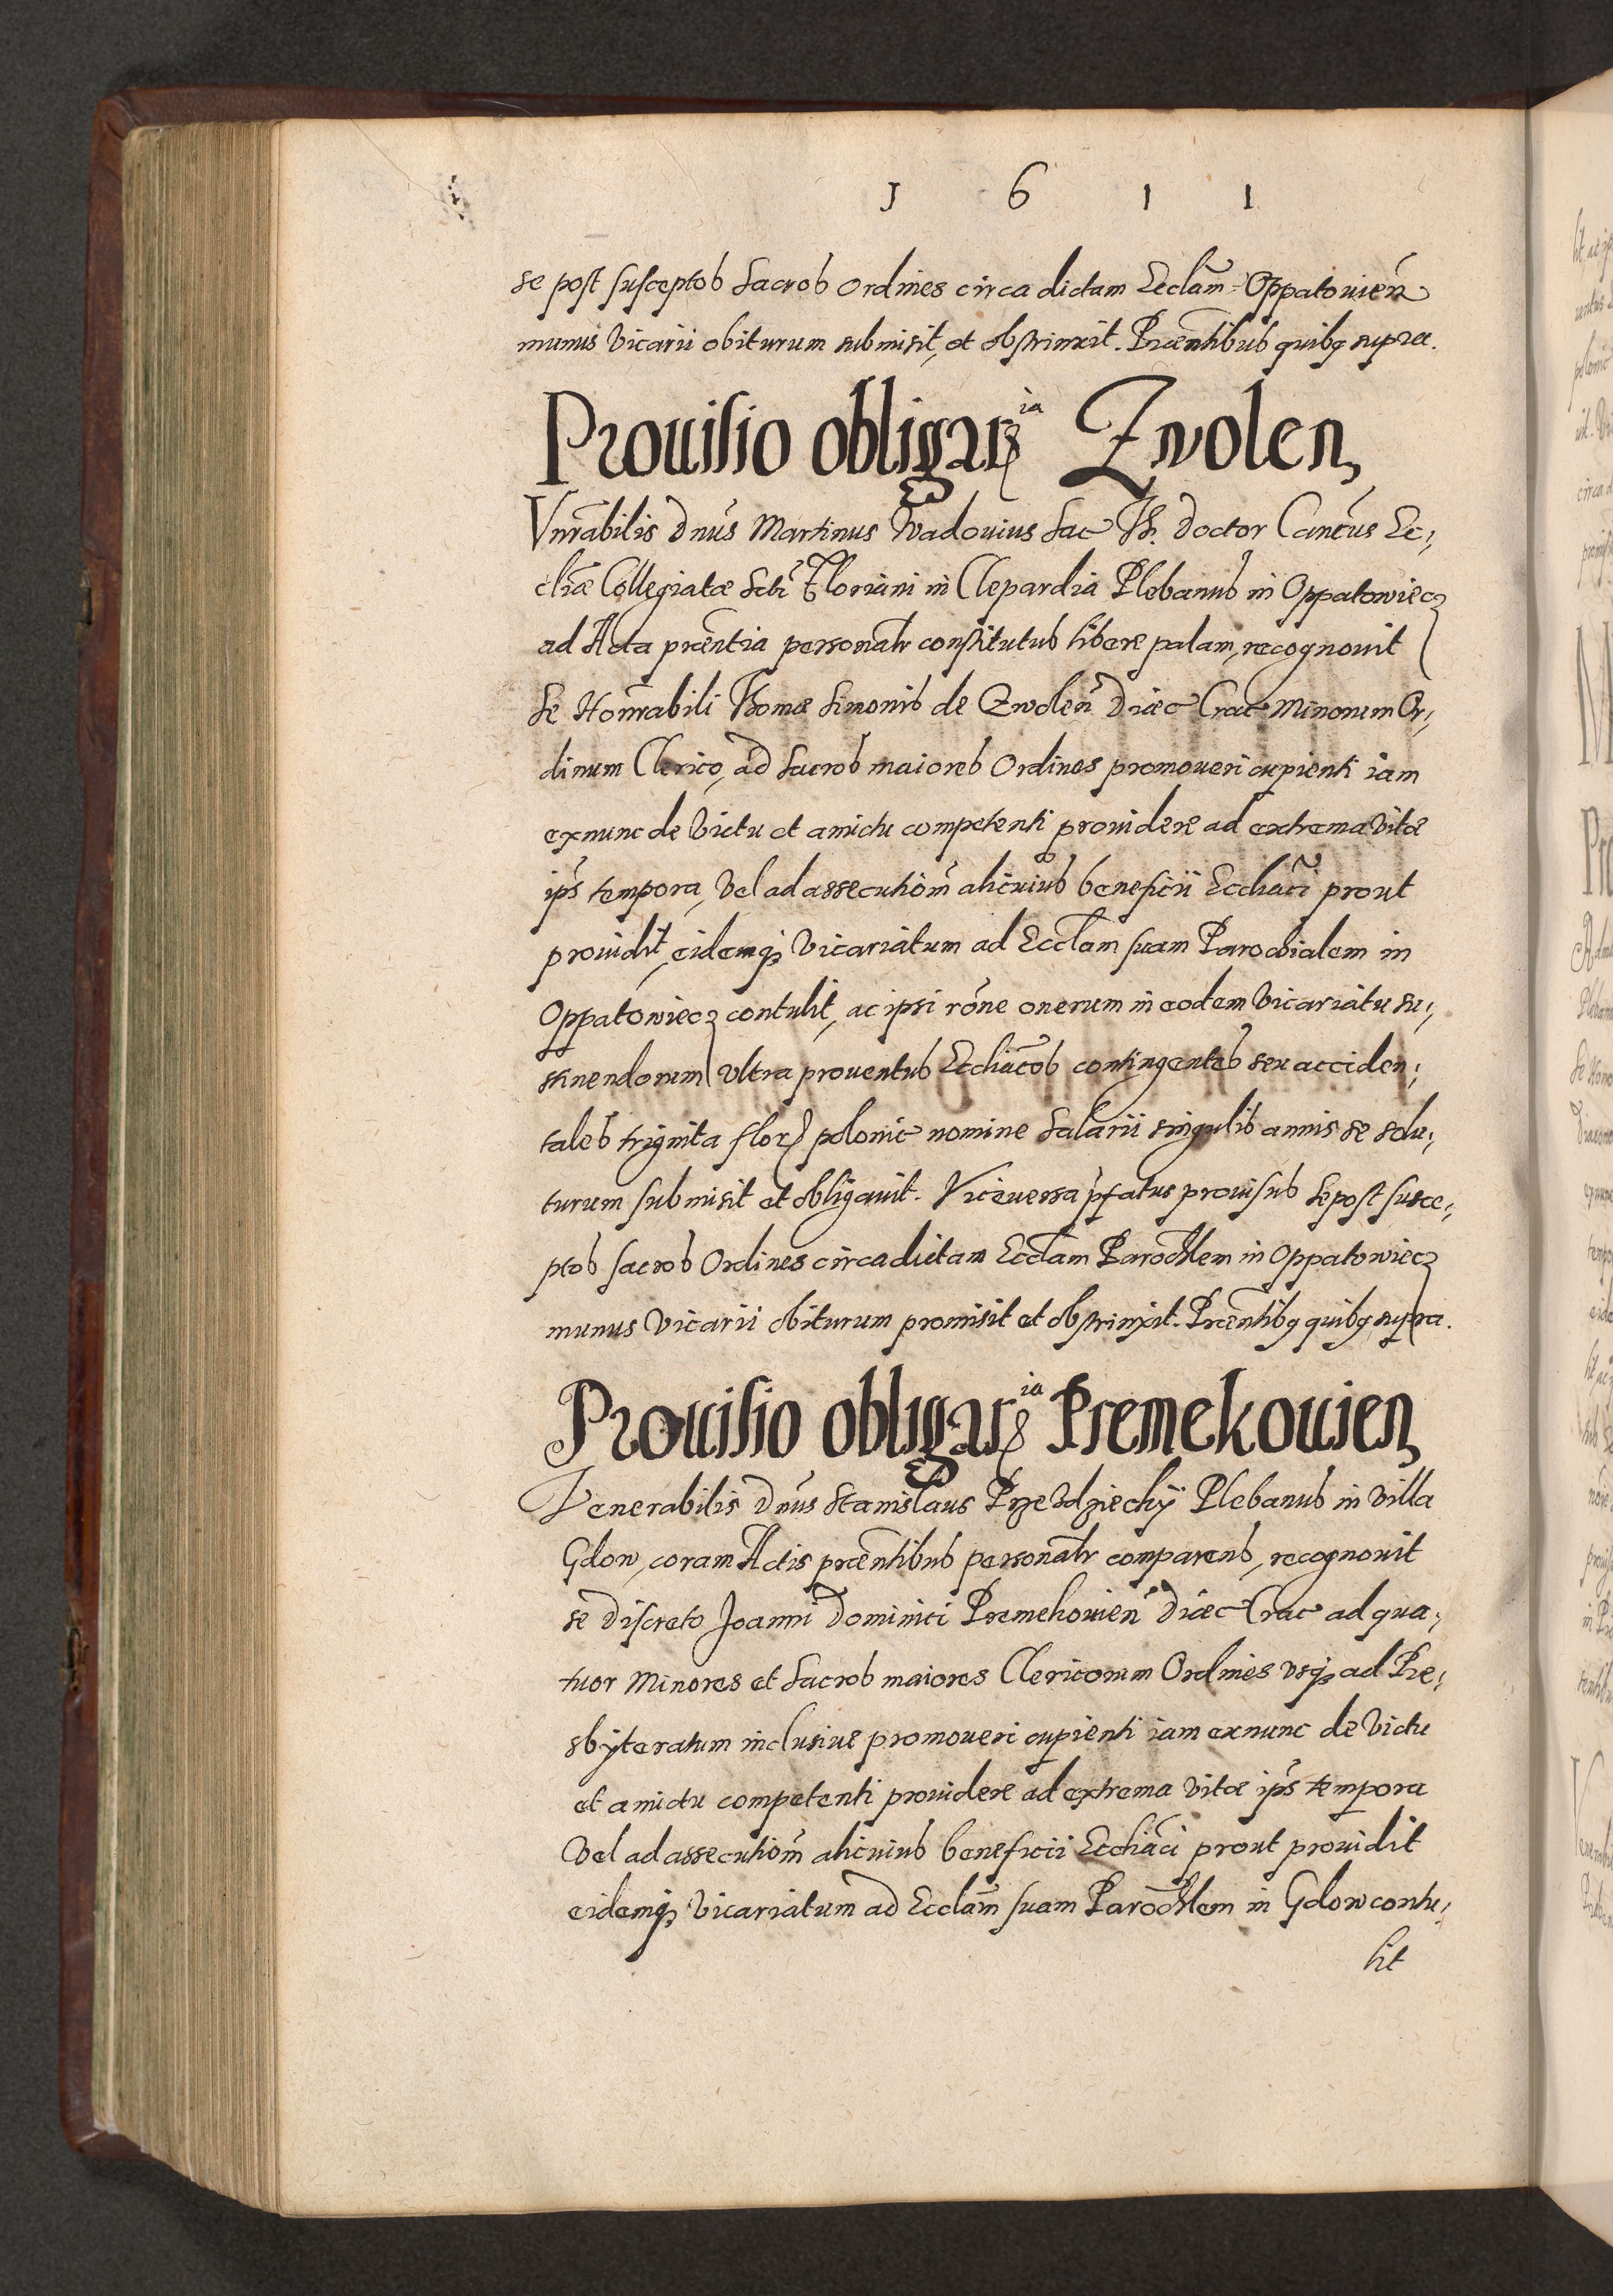 1 6 1 1
se post susceptos Sacros Ordines circa dictam Ecclām Oppatouieñ
munus Vicarii obiturum submisit, et obstrinxit. Præntibus quibȝ supra.
Prouisio obligarȝia Zwolen,
Vnrabilis Dnūs Martinus Wadouius Sac Th. Doctor Cancūs Ec;
cliæ Collegiatæ Scti Floriani in Clepardia Plebanus in Oppatowiecz
ad Acta præntia personalr constitutus libere palam, recognouit
Se Honrabili Thomæ Simonis de Zwolen Diæc Crac Minorum Or;
dinum Clerico, ad Sacros maiores Ordines promoueri cupienti iam
exnunc de Victu et amictu competenti prouidere ad extrema vitæ
ips tempora, Vel ad assecutiom alicuius beneficii Ecchiāci prout
prouidit, eidemqȝ Vicariatum ad Ecclam suam Parochialem in
Oppatowiecz contulit, ac ipsi rōne onerum in eodem Vicariatu su;
stinendorum Vltra prouentus Ecchiacos contingentes seu acciden;
tales triginta flor polonic nomine Salarii singulis annis se solu;
turum submisit et obligauit. Viceuersa pfatus prouisus se post susce;
ptos sacros Ordines circa dictam Ecclam Parochlem in Oppatowiecz
munus Vicarii obiturum promisit et obstrinxit. Præntibȝ quibȝ supra.
Prouisio obligarȝia Premekouien,
Venerabilis Dnūs Stanislaus Przezdziechÿ Plebanus in villa
Gdow, coram Actis præntibus personalr comparens, recognouit
se Discreto Joanni Dominici Premekouien Diæc Crac ad qua;
tuor Minores et Sacros maiores Clericorum Ordines vsqȝ ad Pre;
sbÿteratum inclusiue promoueri cupienti iam exnunc de Victu
et amictu competenti prouidere ad extrema vitæ ips tempora
Vel ad assecutiom alicuius beneficii Ecchiāci prout prouidit
eidemqȝ Vicariatum ad Ecclām suam Parochlem in Gdow contu;
lit